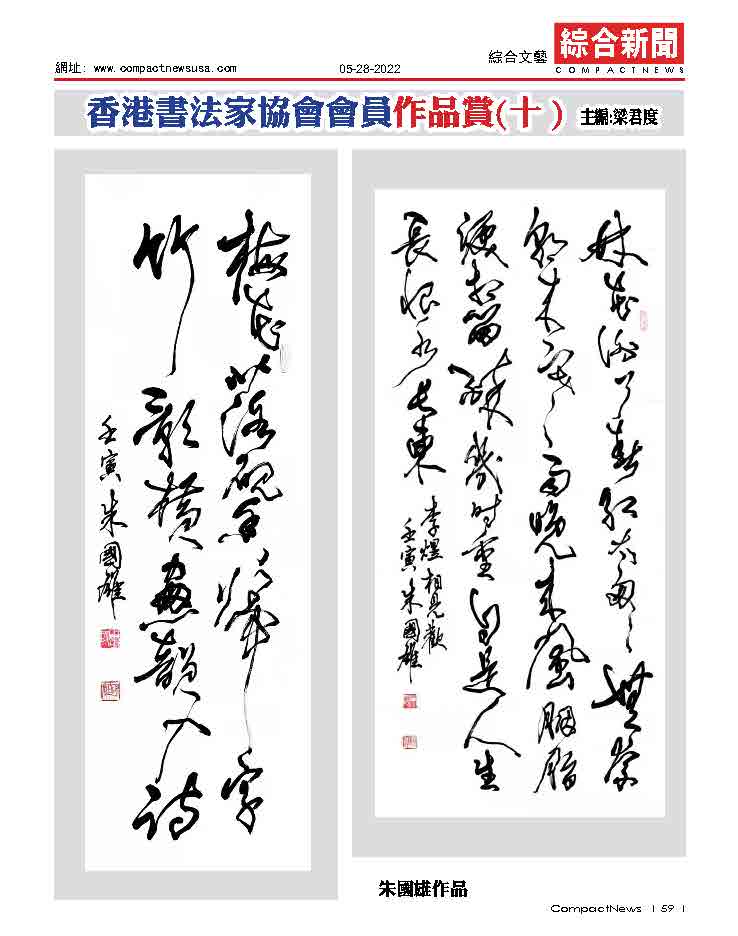 網址: www.compactnewsusa.com
05-28-2022
綜合文藝
綜合新聞
COMPACTNEWS
香港書法家協會會員作品賞(十)
主編:梁君度
林花謝了春紅太匆匆無奈
朝來寒雨晚來風胭脂
淚相留醉幾時重自是人生
長恨水長東
李煜相見歡
壬寅朱國雄
梅花落硯香歸字
竹影橫窗韻入詩
壬寅朱國雄
朱國雄作品
CompactNews | 59 |